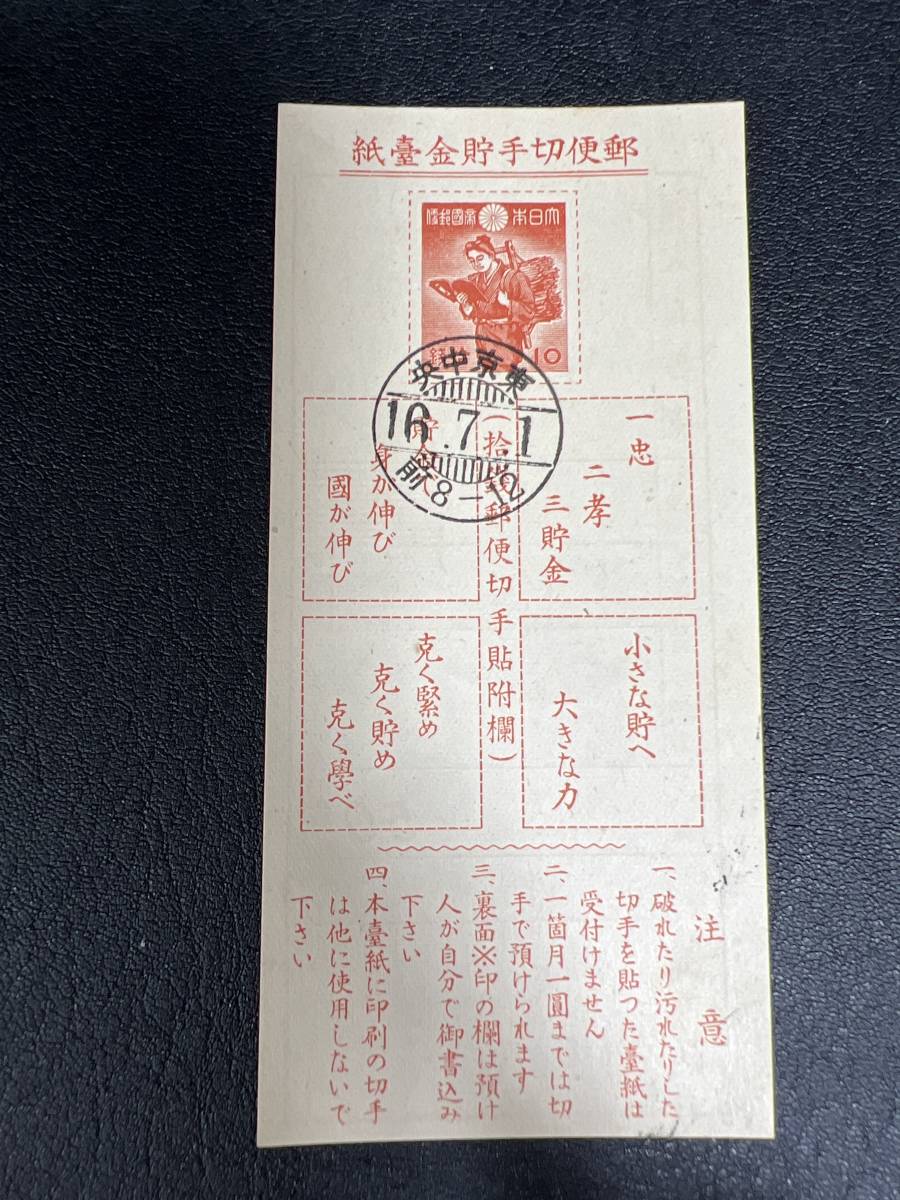 郵便切手貯金臺紙
大日本帝國郵便
10
錢
東京中央
16.7.1
前8-12
一忠
二孝
三貯金
(拾錢郵便切手貼附欄)
貯金
身が伸び
國が伸び
小さな貯へ
大きな力
克く緊め
克く貯め
克く學べ
注意
一、破れたり汚れたりした
切手を貼つた臺紙は
受付けません
二、一箇月一圓までは切
手で預けられます
三、裏面※印の欄は預け
人が自分で御書込み
下さい
四、本臺紙に印刷の切手
は他に使用しないで
下さい